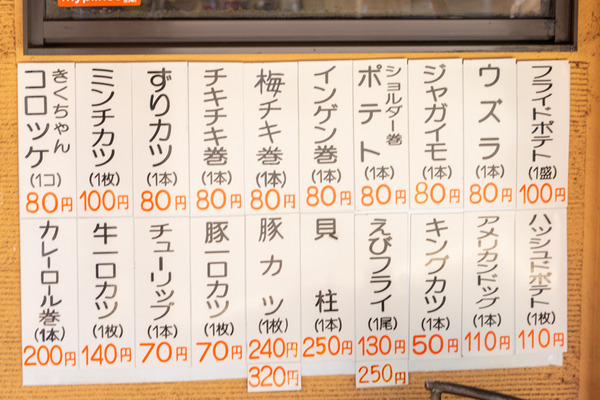 フライドポテト(1盛)100円
ウズラ(1本)80円
ジャガイモ(1本)80円
ショルダー巻ポテト(1本)80円
インゲン巻(1本)80円
梅チキ巻(1本)80円
チキチキ巻(1本)80円
ずりカツ(1本)80円
ミンチカツ(1枚)100円
きくちゃんコロッケ(1コ)80円
ハッシュドポテト(1枚)110円
アメリカンドッグ(1本)110円
キングカツ(1本)50円
えびフライ(1尾)130円
250円
貝柱(1本)250円
豚カツ(1枚)240円
320円
豚一口カツ(1枚)70円
チューリップ(1本)70円
牛一口カツ(1枚)140円
カレーロール巻(1本)200円